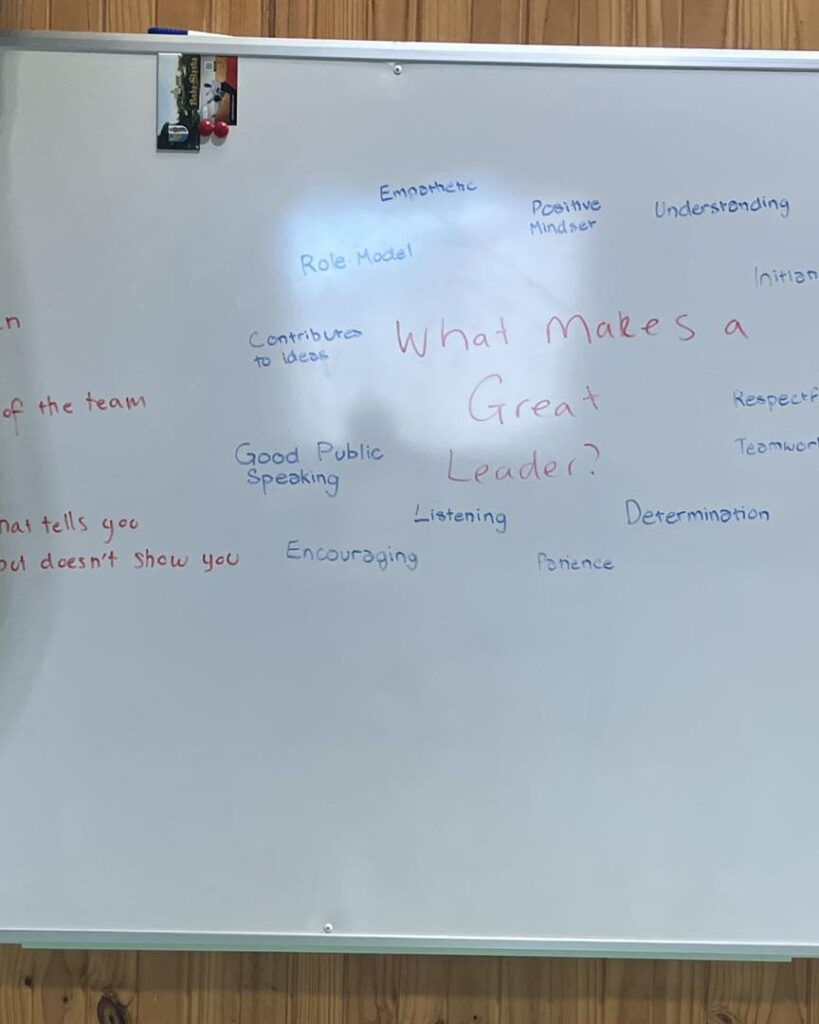 Empathetic
Positive
Mindset
Understanding
Role Model
Initian
.n
Contributes
to ideas
What makes a
Great
Leader?
of the team
Respectf
Teamwor
Good Public
Speaking
Listening
Determination
hat tells you
but doesn't show you
Encouraging
Patience